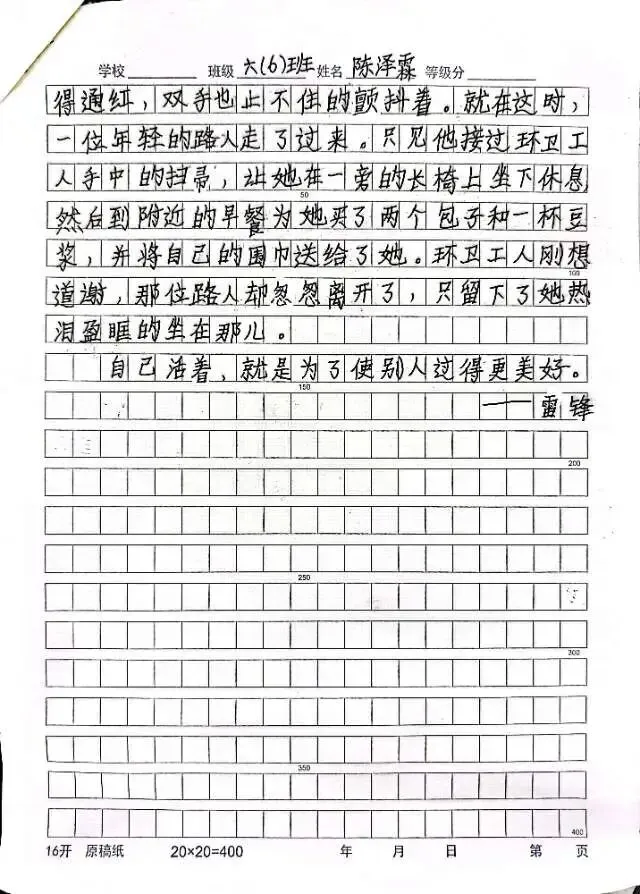 学校 班级 六(6)班 姓名 陈泽霖 等级分
得通红，双手也止不住的颤抖着。就在这时，
一位年轻的路人走了过来。只见他接过环卫工
人手中的扫帚，让她在一旁的长椅上坐下休息
50
然后到附近的早餐为她买了两个包子和一杯豆
浆，并将自己的围巾送给了她。环卫工人刚想
100
道谢，那位路人却忽忽离开了，只留下了她热
泪盈眶的坐在那儿。
自己活着，就是为了使别人过得更美好。
150
——雷锋
200
250
300
350
400
16开 原稿纸 20×20=400 年 月 日 第 页